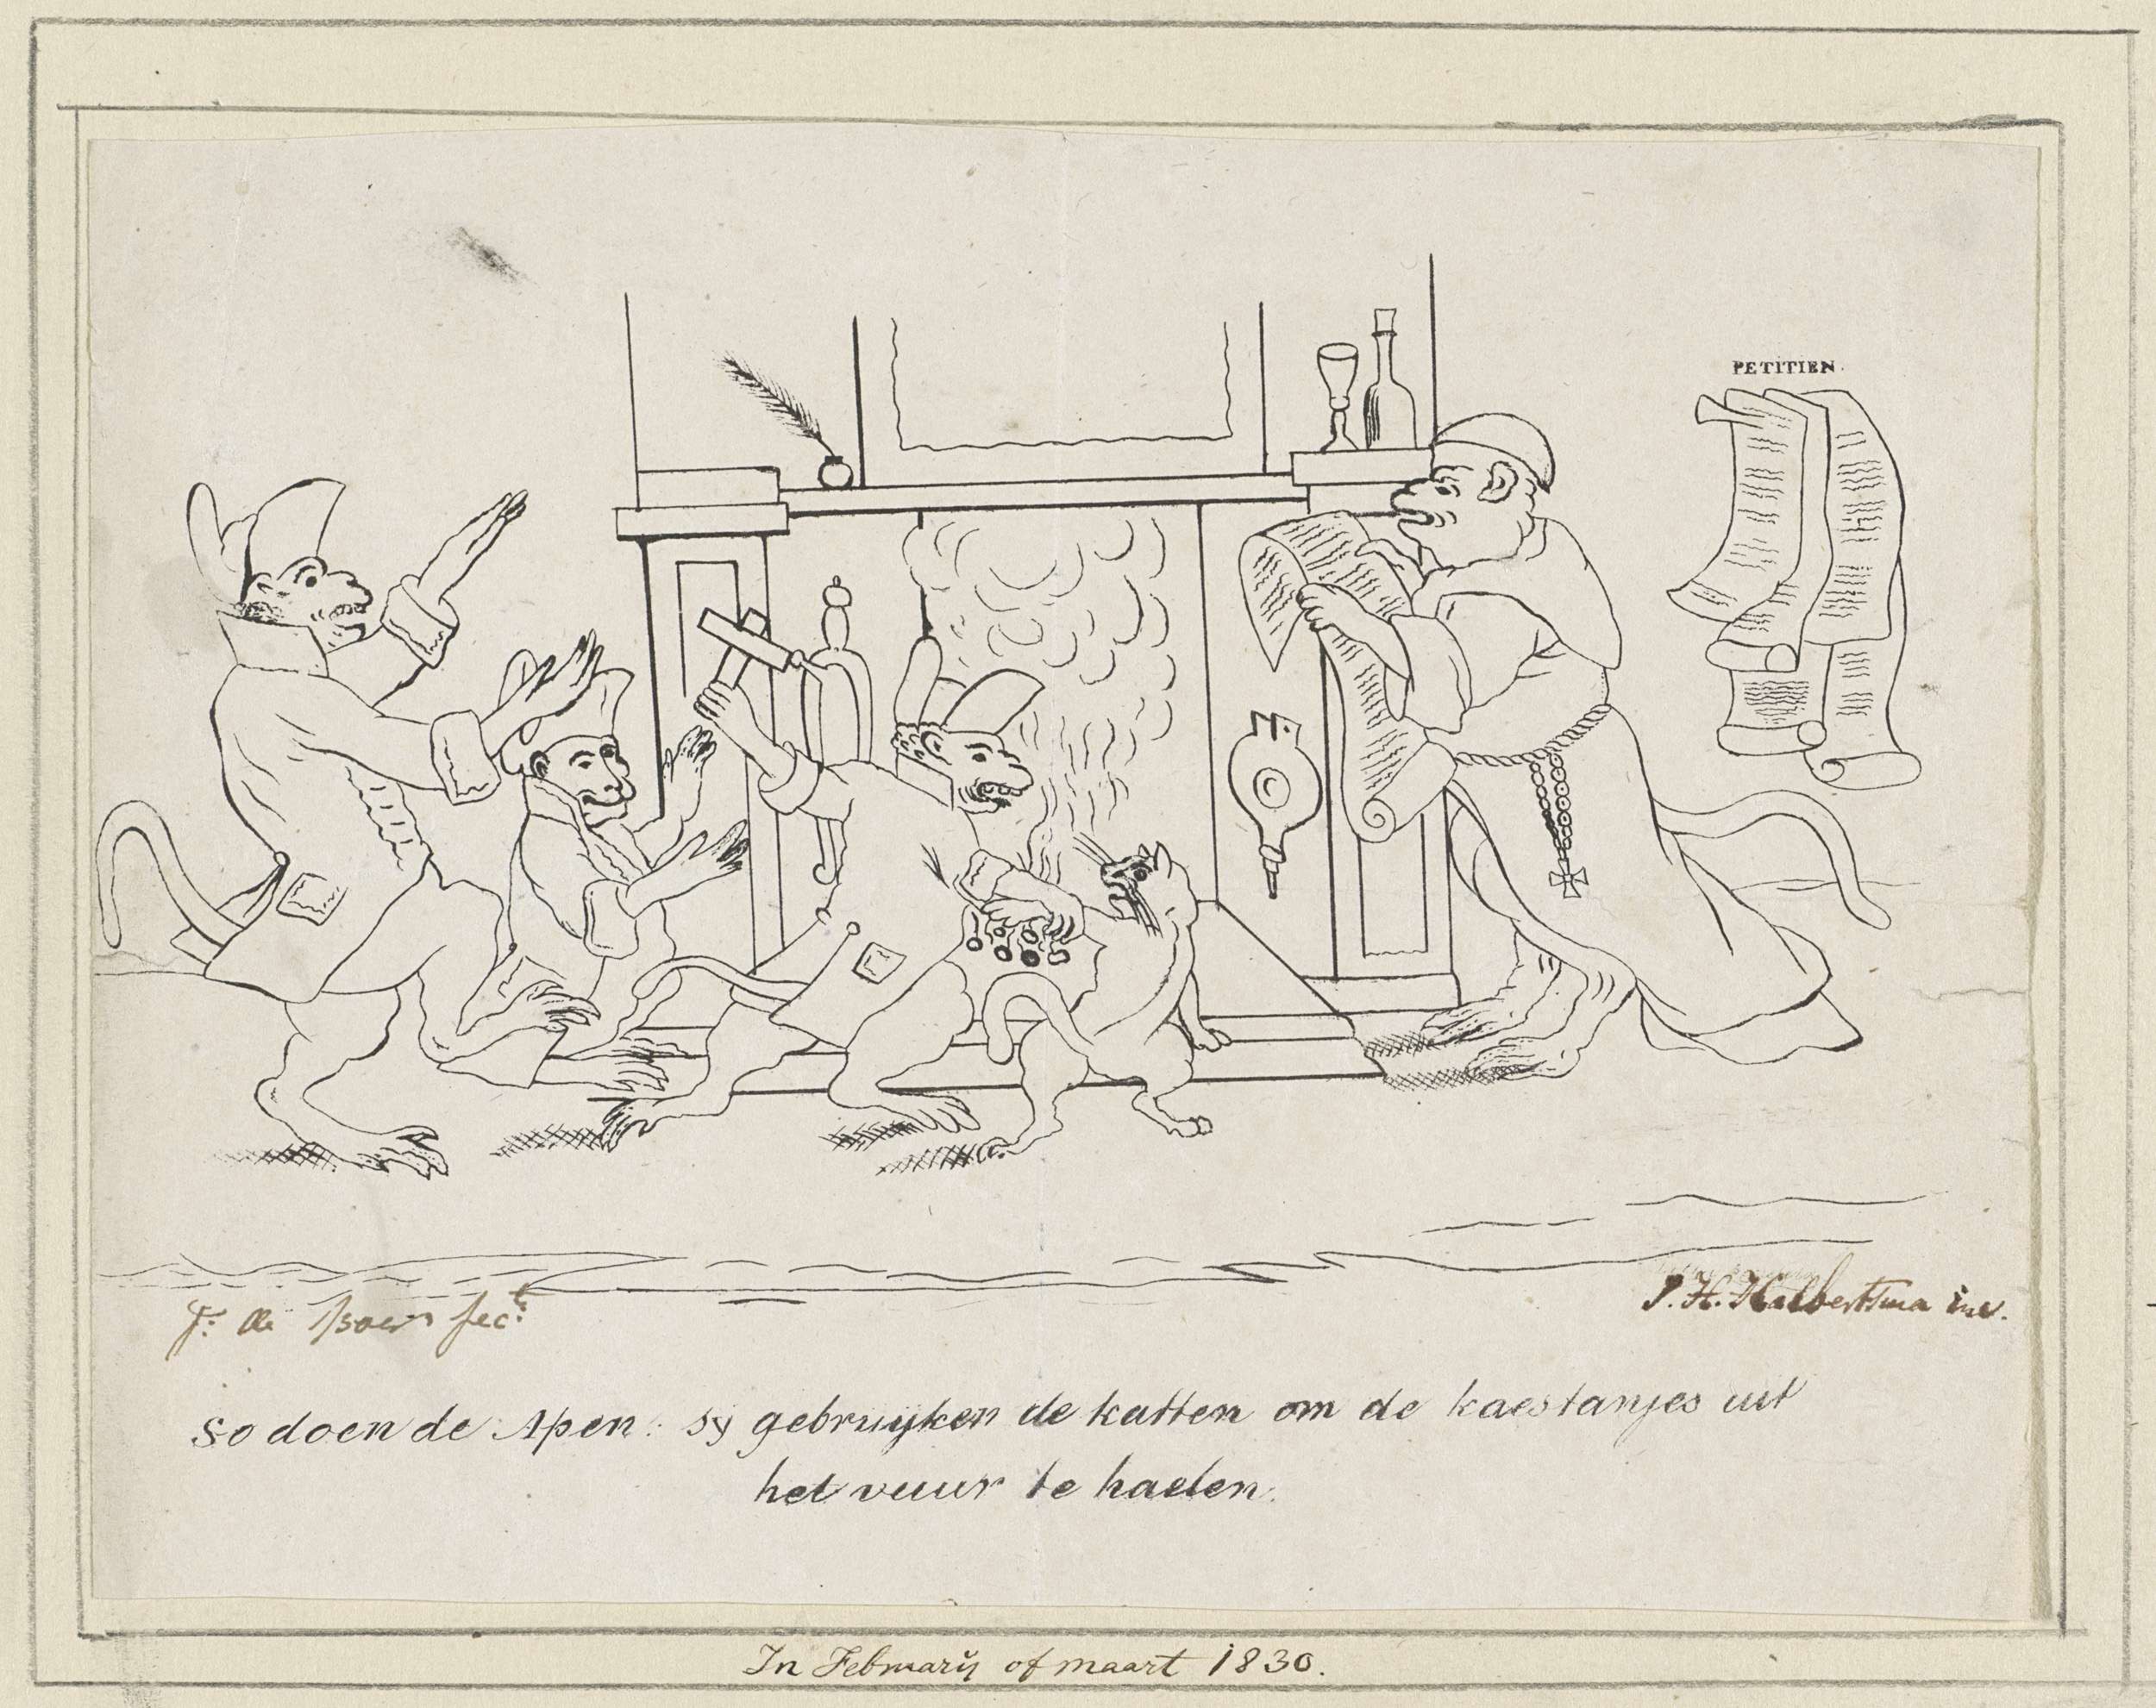 PETITIEN.
J: de Boer fect:
J. H. Halbertsma inv.
So doen de Apen: sy gebruijken de katten om de kaestanjes uit
het vuur te haelen.
In Februarij of maart 1830.